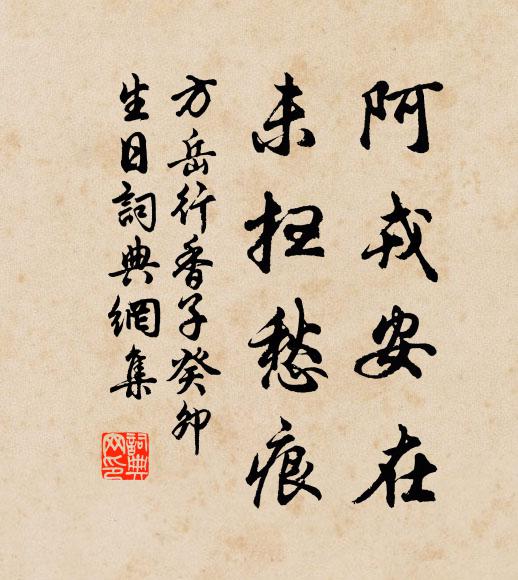 阿戎安在
未扫愁痕
方岳行香子癸卯
生日詞典網集
詞典网印